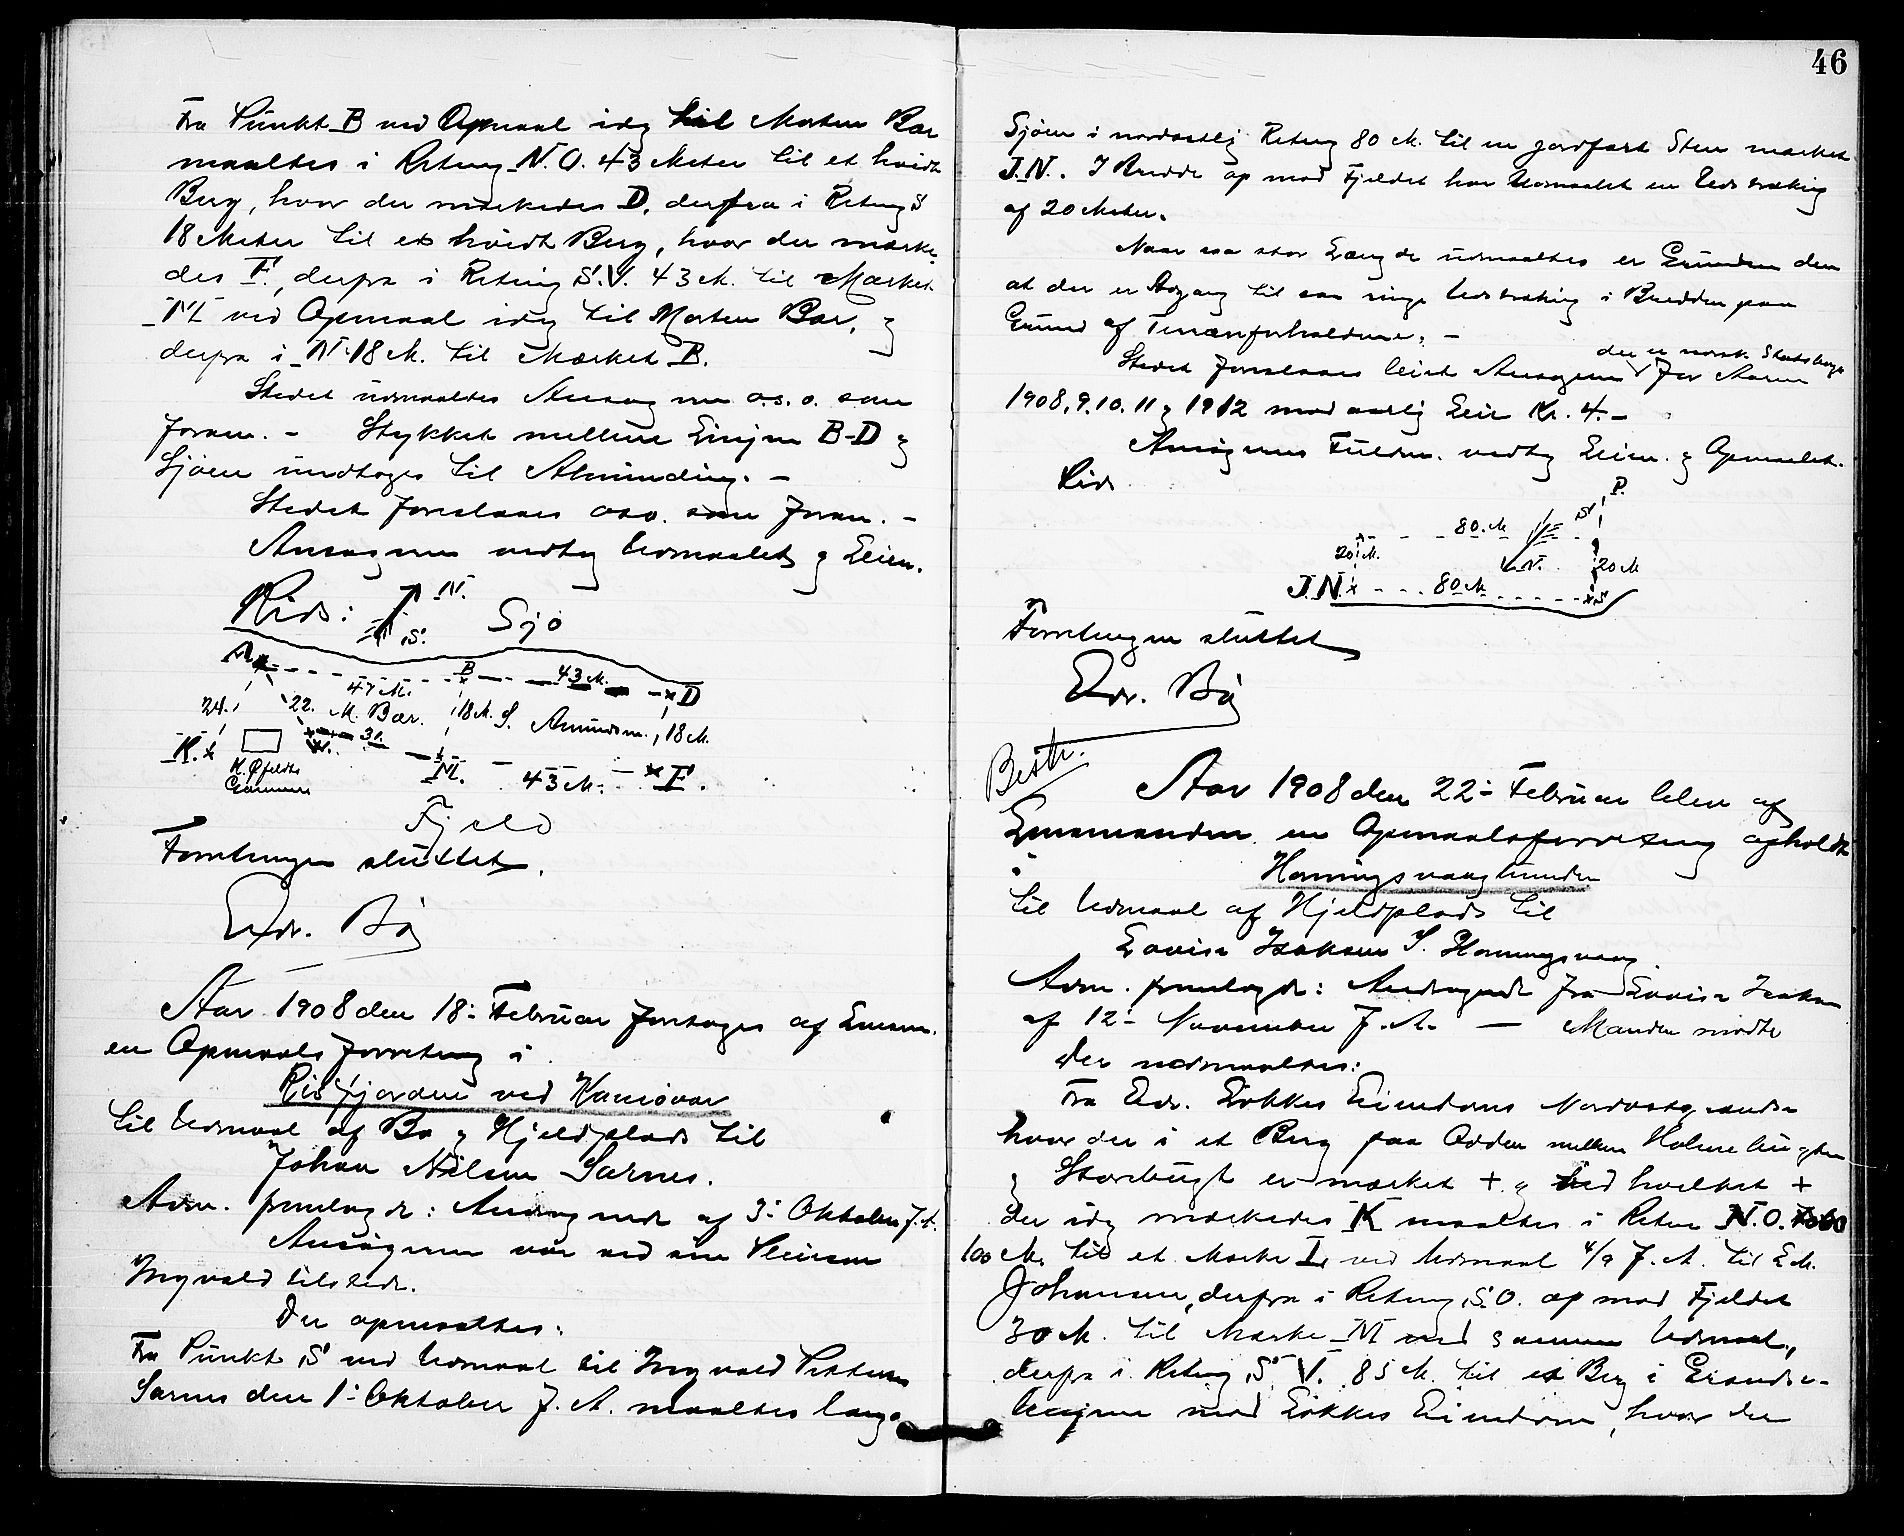 Fra Punkt B ved Opmaal idag til Morten Bær
maaltes i Retning N.O. 43 Meter til et hvidt
Berg, hvor der mærkedes D, derfra i Retning S
18 Meter til et hvidt Berg, hvor der mærke-
des F., derfra i Retning S.V. 43 M. til Mærket
M ved Opmaal idag til Morten Bær, og
derfra i N. 18 M. til Mærket B.
Stedet udmaaltes Ansøgeren o.s.o. som
foran. - Stykket mellem Linjen B-D og
Sjøen undtages til Alminding. -
Stedet foreslaaes oso. som foran. -
Ansøgeren vedtog Udmaalet og Leien.
Rids: N. S. Sjø
A B 43 M. D
47 M.
24. 22. M. Bær. 18 M. S. Amundsen. 18 M.
K. x 31. M. 43 M. F.
Gammen
Fjeld
Forretningen sluttet.
Edv. Bø
Aar 1908 den 18: Februar foretoges af Lensm.
en Opmaalsforretning i
Risfjorden ved Kamøvær
til Udmaal af Bo og Hjeldplads til
Johan Nilsen Sarnes.
Adm. fremlagde: Andragende af 3: Oktober f.A.
Ansøgeren var ved sin Pleiesøn
Ingvald tilstede.
Der opmaaltes:
Fra Punkt S ved Udmaal til Ingvald
Sarnes den 1: Oktober f. A. maaltes langs
46
Sjøen i nordøstlig Retning 80 M. til en jordfast Sten mærket
J.N. I Bredde op mod Fjeldet har Udmaalet en Udstrækning
af 20 Meter.
Naar saa stor Længde udmaaltes er Grunden den
at der er Adgang til saa ringe Udstrækning i Bredden paa
Grund af Terrænforholdene. -
der er norsk Statsborger
Stedet foreslaaes leiet Ansøgeren for Aarene
1908, 9, 10, 11 og 1912 mod aarlig Leie Kr. 4.-
Ansøgerens Fuldm. vedtog Leien og Opmaalet.
Rids P.
80 M S
20 M. N. 20 M
J.N. x 80 M. x S
Forretningen sluttet
Edv. Bø
Bestr.
Aar 1908 den 22: Februar blev af
Lensmanden en Opmaalsforretning afholdt
i
Honningsvaag
til Udmaal af Hjeldplads til
Lovise Isaksen S. Honningsvaag.
Adm. fremlagde: Andragende fra Lovise Isaksen
af 12: November f. A. — Manden mødte
Der udmaaltes:
Fra Edv. Løkkes Eiendoms Nordostgrændse
hvor der i et Berg paa Odden mellem Holmebugten
og Storebugt er mærket + og ved hvilket +
der idag mærkedes K maaltes i Retn N.O.
100 M. til et Mærke L ved Udmaal 4/9 f. A. til E. M.
Johansen, derfra i Retning S.O. op mod Fjeldet
30 M. til Mærke M ved samme Udmaal,
derfra i Retning S. V. 85 M. til et Berg i Grændse-
linjen mod Løkkes Eiendom, hvor der